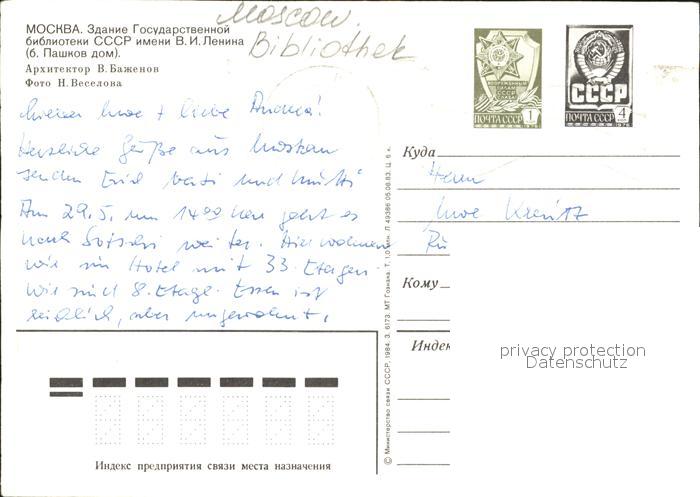 Moscow.
Bibliothek
МОСКВА. Здание Государственной
библиотеки СССР имени В. И. Ленина
(б. Пашков дом).
Архитектор В. Баженов
Фото Н. Веселова
Lieber Uwe + liebe Andrea!
Herzliche Grüße aus Moskau
senden Euch Vati und Mutti
Am 29.5. um 14⁰⁰ Uhr geht es
nach Sotschi weiter. Hier wohnen
wir im Hotel mit 33 Etagen.
Wir sind 8. Etage. Essen ist
reichlich, aber ungewohnt.
ВООРУЖЕННЫМ
СИЛАМ
СССР
СЛАВА!
ПОЧТА СССР 1
СССР
ПОЧТА СССР 4
КОП
1976
Куда
Herrn
Uwe
Кому
Индек
© Министерство связи СССР, 1984. З. 6173. МТ Гознака. Т. 1,0 млн. Л 49386 05.08.83. Ц. 6 к.
Индекс предприятия связи места назначения
privacy protection
Datenschutz